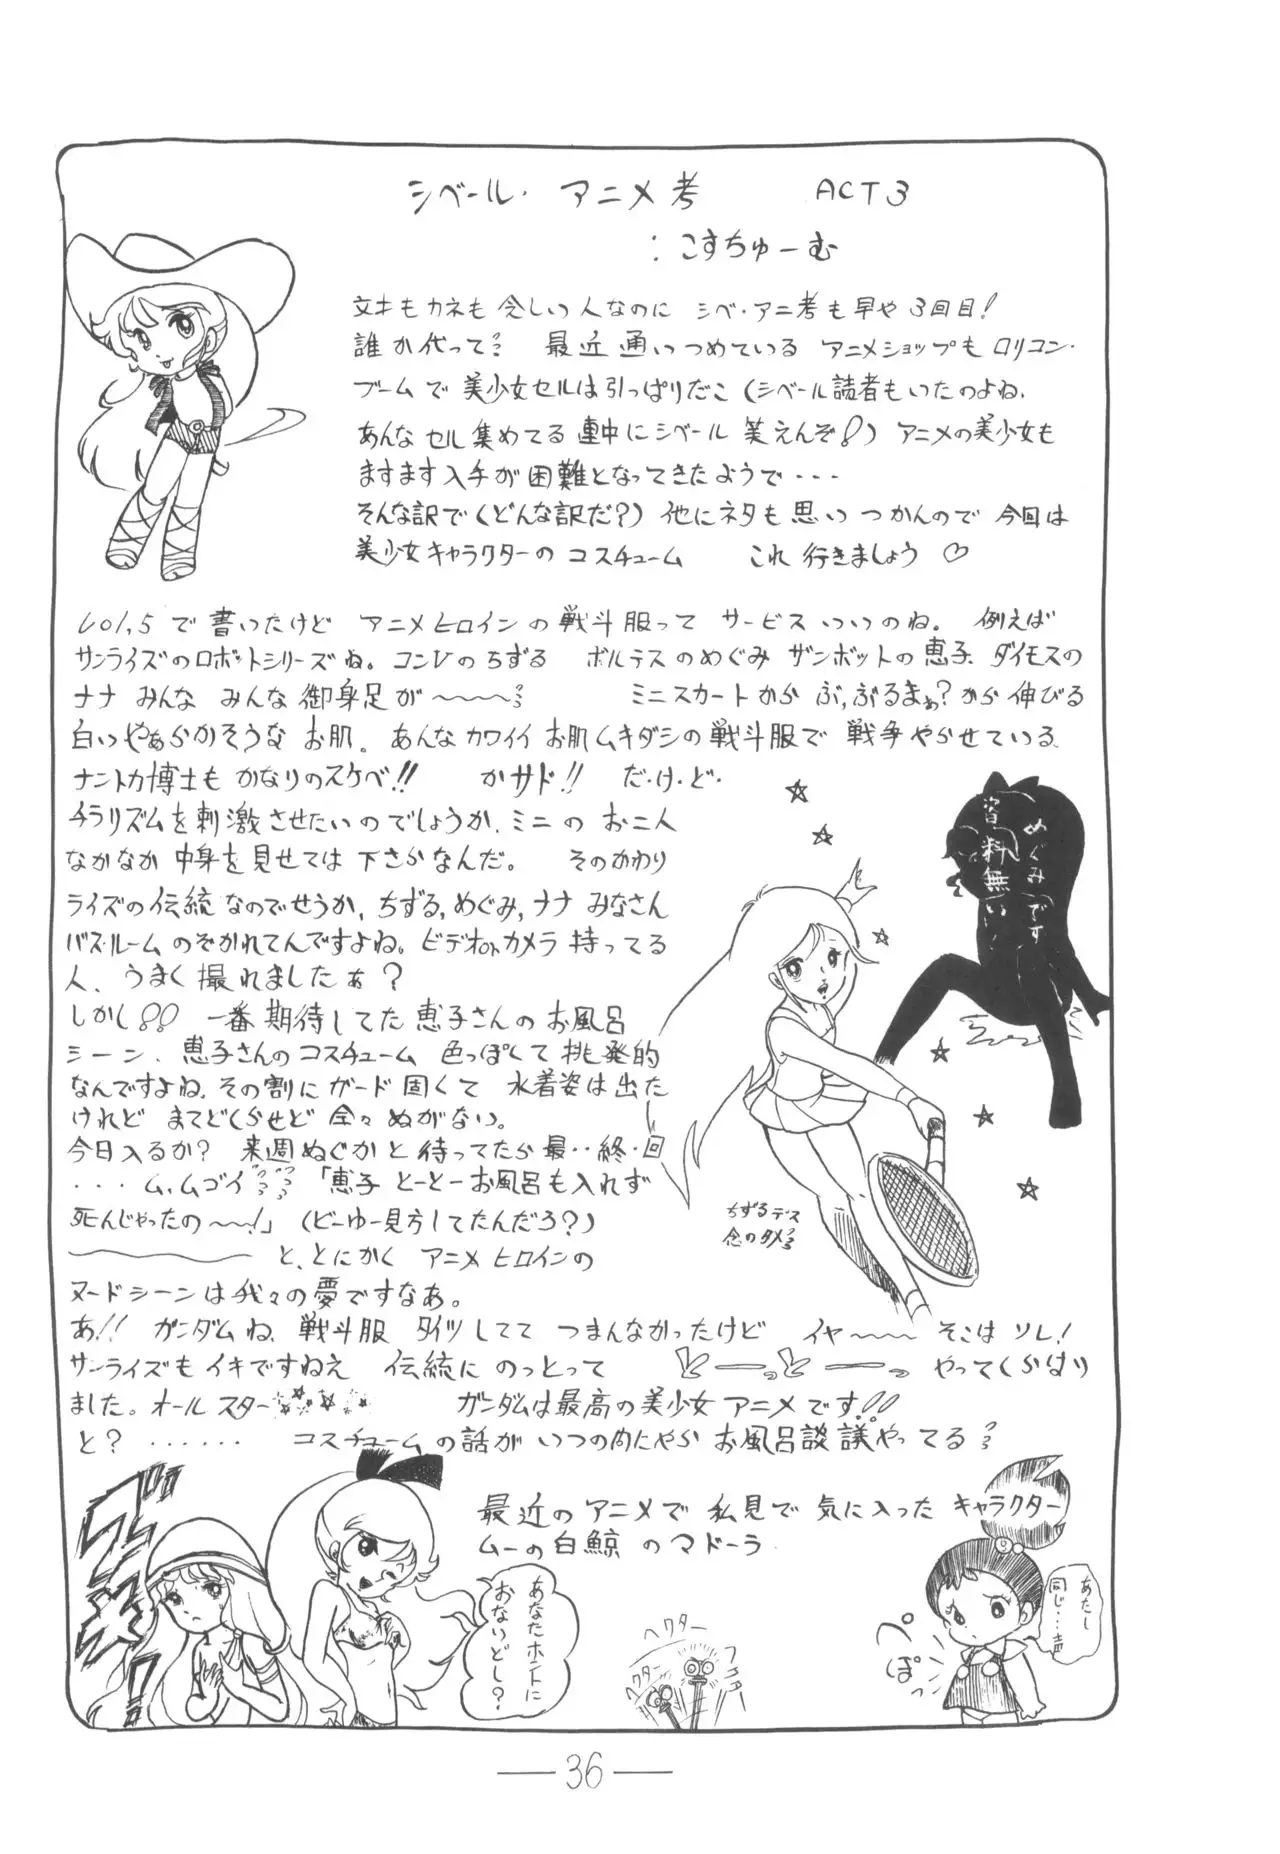 シベール・アニメ考 ACT3
：こすちゅーむ
文才もカネも乏しい人なのに シベ・アニ考も早や3回目！
誰か代って 最近通いつめている アニメショップもロリコン・
ブームで美少女セルは引っぱりだこ（シベール読者もいたのよね、
あんなセル集めてる連中にシベール 笑えんぞ！）アニメの美少女も
ますます入手が困難となってきたようで・・・
そんな訳で（どんな訳だ？）他にネタも思いつかんので 今回は
美少女キャラクターのコスチューム これ行きましょう♡
Vol.5で書いたけど アニメヒロインの戦斗服って サービスいいのね。例えば
サンライズのロボットシリーズね。コンVのちずる ボルテスのめぐみ ザンボットの恵子 ダイモスの
ナナ みんな みんな 御身足が〜〜〜 ミニスカートから ぶ,ぶるまぁ？から伸びる
白いやぁらかそうな お肌。あんなカワイイお肌ムキダシの戦斗服で 戦争やらせている
ナントカ博士も かなりのスケベ!! かサド!! だ・け・ど・
チラリズムを刺激させたいのでしょうか、ミニの お二人
なかなか中身を見せては下さらなんだ。 そのかわり
ライズの伝統なのでせうか,ちずる,めぐみ,ナナ みなさん
バス・ルームのぞかれてんですよね。ビデオorカメラ持ってる
人、うまく撮れましたぁ？
しかし!! 一番期待してた恵子さんのお風呂
シーン、恵子さんのコスチューム 色っぽくて挑発的
なんですよね、その割にガード固くて 水着姿は出た
けれど まてどくらせど 全々ぬがない。
今日入るか？ 来週ぬぐかと待ってたら最・・終・回
・・・ム,ムゴイ 「恵子 とーとーお風呂も入れず
死んじゃったの〜〜！」（どーゆー見方してたんだろ？）
と、とにかく アニメヒロインの
ヌードシーンは我々の夢ですなあ。
あ!! ガンダムね、戦斗服 タイツしてて つまんなかったけど イヤ〜〜〜 そこはソレ！
サンライズもイキですねえ 伝統にのっとって どーっとーっ やってくらはり
ました。オールスター ガンダムは最高の美少女アニメです!!
と？・・・・・・ コスチュームの話がいつの内にやら お風呂談議やってる
めぐみです
資料無い！
ちずるデス
念のタメ
最近のアニメで 私見で 気に入った キャラクター
ムーの白鯨のマドーラ
あなたホントに
おないどし？
ヘクター
ヘクター
ぺ
ぽっ
あたし
同じ・・声
— 36 —